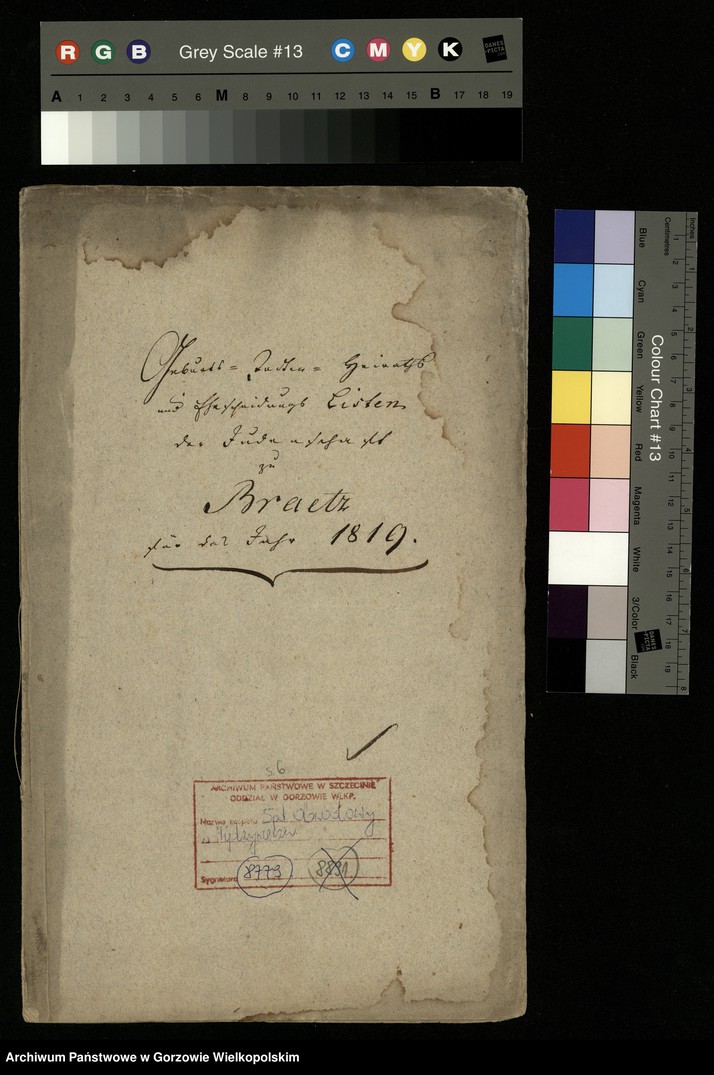 R G B Grey Scale #13 C M Y K DANES PICTA .com
A 1 2 3 4 5 6 M 8 9 10 11 12 13 14 15 B 17 18 19
Geburts= Todten= Heiraths
und Ehescheidungs Listen
der Judenschaft
zu
Braetz
für das Jahr 1819.
s. 6
ARCHIWUM PAŃSTWOWE W SZCZECINIE
ODDZIAŁ W GORZOWIE WLKP.
Nazwa zespołu Sąd Obwodowy
w Międzyrzeczu
Sygnatura 8779 8891
Blue
Cyan
Green
Yellow
Red
Magenta
White
3/Color
Black
Colour Chart #13
DANES PICTA .com
Centimetres
1 2 3 4 5 6 7 8 9 10 11 12 13 14 15 16 17 18 19
Inches
1 2 3 4 5 6 7 8
Archiwum Państwowe w Gorzowie Wielkopolskim